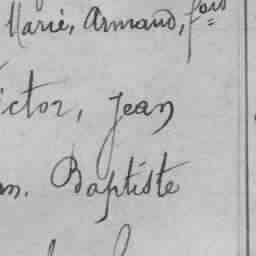 Marie, Armand, fois
ictor, Jean
n. Baptiste